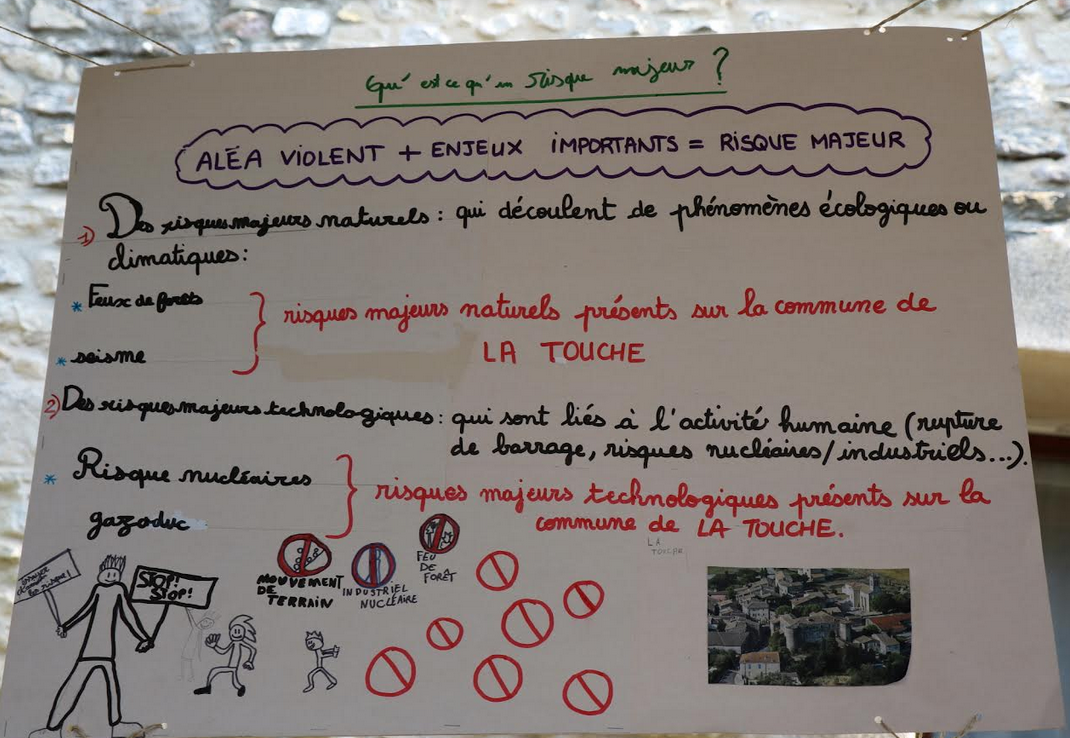 Qu'est ce qu'un Risque majeur ?
ALÉA VIOLENT + ENJEUX IMPORTANTS = RISQUE MAJEUR
1) Des risques majeurs naturels : qui découlent de phénomènes écologiques ou
climatiques :
* Feux de forêts
risques majeurs naturels présents sur la commune de
LA TOUCHE
* seisme
2) Des risques majeurs technologiques : qui sont liés à l'activité humaine (rupture
de barrage, risques nucléaires/industriels...).
* Risque nucléaires
gazoduc
risques majeurs technologiques présents sur la
commune de LA TOUCHE.
LA
TOUCHE
STOP!
STOP!
MOUVEMENT
DE
TERRAIN
INDUSTRIEL
NUCLÉAIRE
FEU
DE
FORÊT